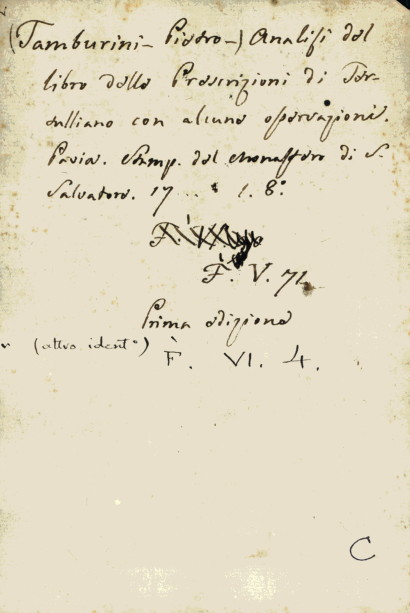 (Tamburini - Pietro -) Analisi del
libro delle Prescrizioni di Ter-
tulliano con alcune osservazioni.
Pavia. Stamp. del Monastero di S.
Salvatore. 17 ... 1. 8°
F. V. 71
Prima edizione
(altro ident°) F. VI. 4.
C